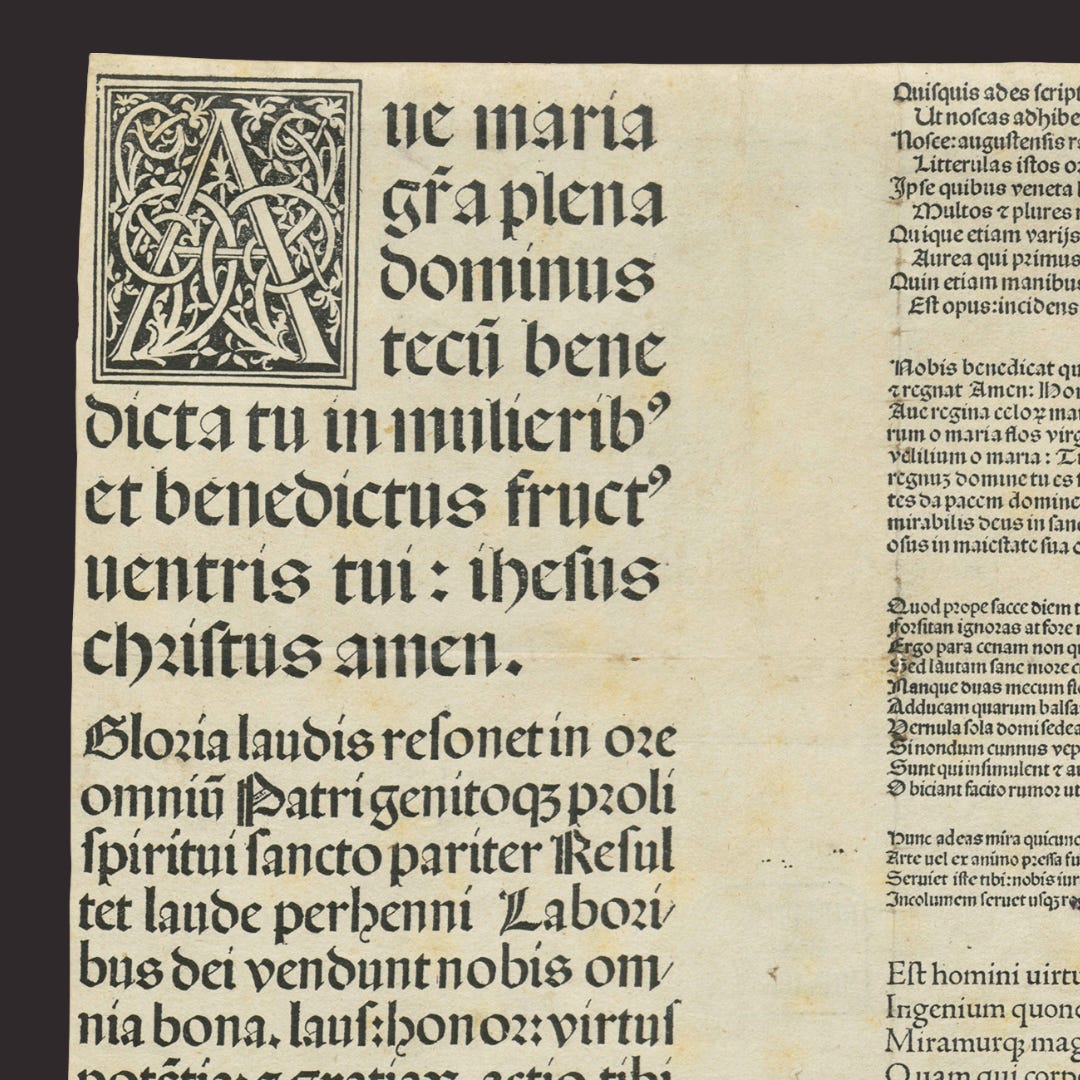 Aue maria
gr̄a plena
dominus
tecū bene
dicta tu in mulierib⁹
et benedictus fruct⁹
uentris tui : ihesus
christus amen.
Gloria laudis resonet in ore
omniū Patri genitoqꝫ proli
spiritui sancto pariter Resul
tet laude perhenni Labori/
bus dei vendunt nobis om/
nia bona. laus:honor:virtus
potētia: ⁊ gratiaꝝ actio tibi
Quisquis ades script
Ut noscas adhibe
Nosce: augustensis r
Litterulas istos o
Ipse quibus veneta
Multos ⁊ plures
Quique etiam varijs
Aurea qui primus
Quin etiam manibus
Est opus:incidens
Nobis benedicat qu
⁊ regnat Amen: Hon
Aue regina celoꝝ ma
rum o maria flos virg
vel lilium o maria : 
regnuꝫ domine tu es
tes da pacem domine
mirabilis deus in san
osus in maiestate sua
Quod prope facce diem t
Forsitan ignoras at fore
Ergo para cenam non q
Sed lautam sane more
Nanque duas mecum fl
Adducam quarum balsa
Vernula sola domi sedea
Si nondum cunnus vep
Sunt qui insimulent ⁊ a
Obiciant facito rumor ut
Hunc adeas mira quicunc
Arte uel ex animo pressa fu
Seruiet iste tibi:nobis iur
Incolumem seruet usqꝫ ro
Est homini uirtu
Ingenium quond
Miramurqꝫ mag
Quam qui corp